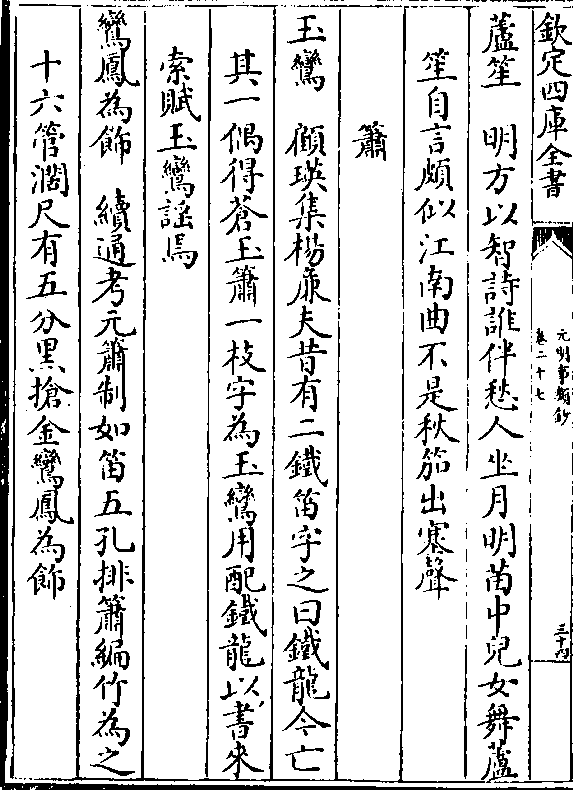 欽定四庫全書
元明事類鈔
卷二十七
三十四
蘆笙　明方以智詩誰伴愁人坐月明苗中兒女舞蘆
笙自言頗似江南曲不是秋笳出塞聲
簫
玉鸞　顧瑛集楊廉夫昔有二鐵笛字之曰鐵龍今亡
其一偶得蒼玉簫一枝字為玉鸞用配鐵龍以書來
索賦玉鸞謡焉
鸞鳳為飾　續通考元簫制如笛五孔排簫編竹為之
十六管濶尺有五分黒搶金鸞鳳為飾